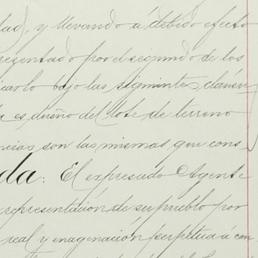 dad, y llevando á debido efecto
presentado por el segundo de los
bajo las siguientes
es dueño del lote de terreno
son las mismas que cons
da. El expresado Agente
representación de su pueblo por
real y enagenación perpétua á